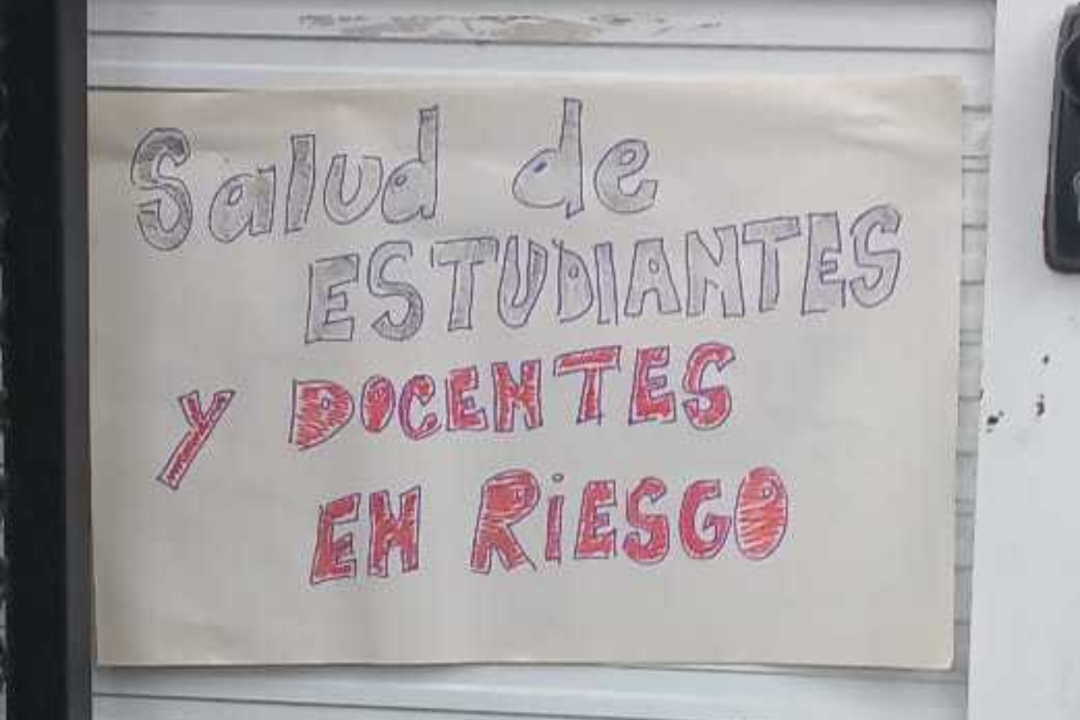 Salud de
ESTUDIANTES
y DOCENTES
EN RiESGO